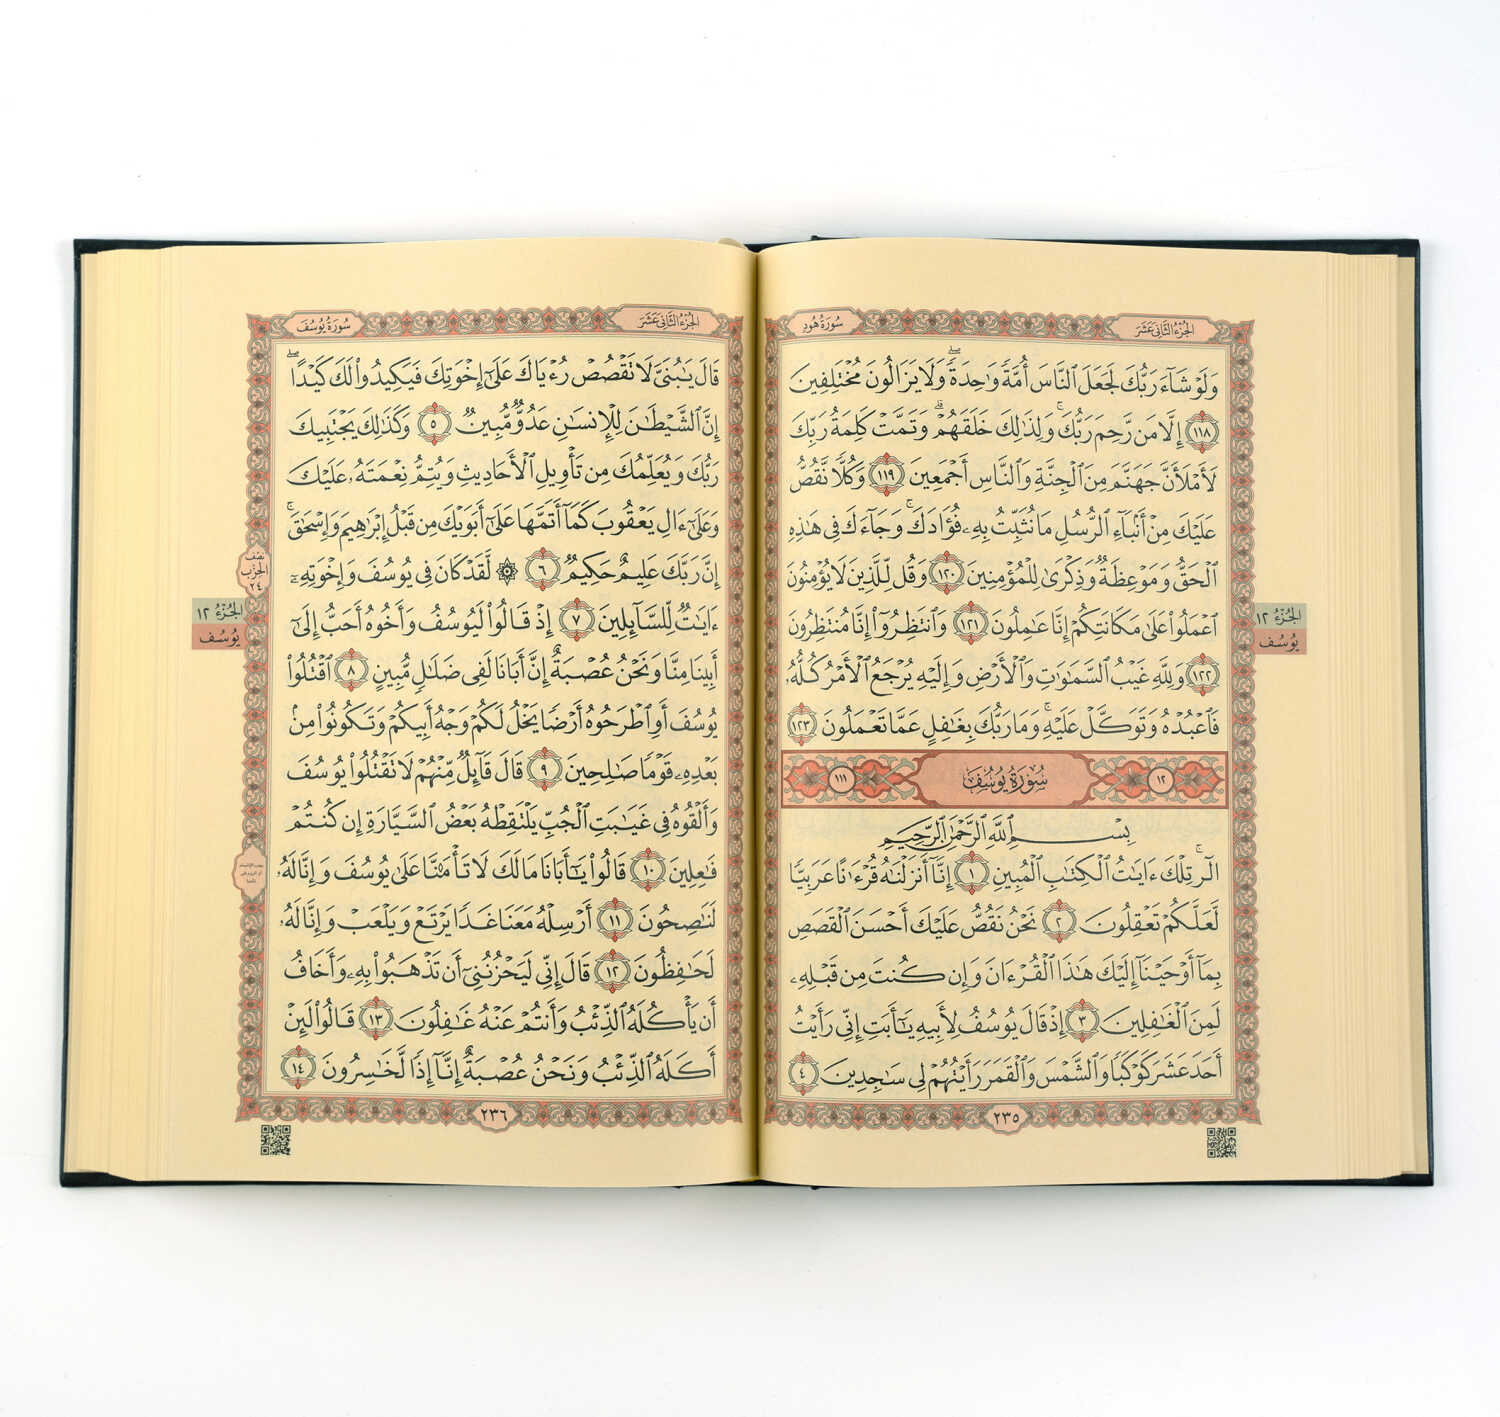 الجزء الثاني عشر
سورة هود
وَلَوْ شَآءَ رَبُّكَ لَجَعَلَ ٱلنَّاسَ أُمَّةً وَٰحِدَةً ۖ وَلَا يَزَالُونَ مُخْتَلِفِينَ
١١٨ إِلَّا مَن رَّحِمَ رَبُّكَ ۚ وَلِذَٰلِكَ خَلَقَهُمْ ۗ وَتَمَّتْ كَلِمَةُ رَبِّكَ
لَأَمْلَأَنَّ جَهَنَّمَ مِنَ ٱلْجِنَّةِ وَٱلنَّاسِ أَجْمَعِينَ ١١٩ وَكُلًّا نَّقُصُّ
عَلَيْكَ مِنْ أَنۢبَآءِ ٱلرُّسُلِ مَا نُثَبِّتُ بِهِۦ فُؤَادَكَ ۚ وَجَآءَكَ فِى هَٰذِهِ
ٱلْحَقُّ وَمَوْعِظَةٌ وَذِكْرَىٰ لِلْمُؤْمِنِينَ ١٢٠ وَقُل لِّلَّذِينَ لَا يُؤْمِنُونَ
ٱعْمَلُوا۟ عَلَىٰ مَكَانَتِكُمْ إِنَّا عَٰمِلُونَ ١٢١ وَٱنتَظِرُوٓا۟ إِنَّا مُنتَظِرُونَ
١٢٢ وَلِلَّهِ غَيْبُ ٱلسَّمَٰوَٰتِ وَٱلْأَرْضِ وَإِلَيْهِ يُرْجَعُ ٱلْأَمْرُ كُلُّهُۥ
فَٱعْبُدْهُ وَتَوَكَّلْ عَلَيْهِ ۚ وَمَا رَبُّكَ بِغَٰفِلٍ عَمَّا تَعْمَلُونَ ١٢٣
١٢ سُورَةُ يُوسُفَ ١١١
بِسْمِ ٱللَّهِ ٱلرَّحْمَٰنِ ٱلرَّحِيمِ
الٓر ۚ تِلْكَ ءَايَٰتُ ٱلْكِتَٰبِ ٱلْمُبِينِ ١ إِنَّآ أَنزَلْنَٰهُ قُرْءَٰنًا عَرَبِيًّا
لَّعَلَّكُمْ تَعْقِلُونَ ٢ نَحْنُ نَقُصُّ عَلَيْكَ أَحْسَنَ ٱلْقَصَصِ
بِمَآ أَوْحَيْنَآ إِلَيْكَ هَٰذَا ٱلْقُرْءَانَ وَإِن كُنتَ مِن قَبْلِهِۦ
لَمِنَ ٱلْغَٰفِلِينَ ٣ إِذْ قَالَ يُوسُفُ لِأَبِيهِ يَٰٓأَبَتِ إِنِّى رَأَيْتُ
أَحَدَ عَشَرَ كَوْكَبًا وَٱلشَّمْسَ وَٱلْقَمَرَ رَأَيْتُهُمْ لِى سَٰجِدِينَ ٤
٢٣٥
الجزء ١٢
يوسف
الجزء الثاني عشر
سورة يوسف
قَالَ يَٰبُنَىَّ لَا تَقْصُصْ رُءْيَاكَ عَلَىٰٓ إِخْوَتِكَ فَيَكِيدُوا۟ لَكَ كَيْدًا ۖ
إِنَّ ٱلشَّيْطَٰنَ لِلْإِنسَٰنِ عَدُوٌّ مُّبِينٌ ٥ وَكَذَٰلِكَ يَجْتَبِيكَ
رَبُّكَ وَيُعَلِّمُكَ مِن تَأْوِيلِ ٱلْأَحَادِيثِ وَيُتِمُّ نِعْمَتَهُۥ عَلَيْكَ
وَعَلَىٰٓ ءَالِ يَعْقُوبَ كَمَآ أَتَمَّهَا عَلَىٰٓ أَبَوَيْكَ مِن قَبْلُ إِبْرَٰهِيمَ وَإِسْحَٰقَ ۚ
إِنَّ رَبَّكَ عَلِيمٌ حَكِيمٌ ٦ ۞ لَّقَدْ كَانَ فِى يُوسُفَ وَإِخْوَتِهِۦٓ
ءَايَٰتٌ لِّلسَّآئِلِينَ ٧ إِذْ قَالُوا۟ لَيُوسُفُ وَأَخُوهُ أَحَبُّ إِلَىٰٓ
أَبِينَا مِنَّا وَنَحْنُ عُصْبَةٌ إِنَّ أَبَانَا لَفِى ضَلَٰلٍ مُّبِينٍ ٨ ٱقْتُلُوا۟
يُوسُفَ أَوِ ٱطْرَحُوهُ أَرْضًا يَخْلُ لَكُمْ وَجْهُ أَبِيكُمْ وَتَكُونُوا۟ مِنۢ
بَعْدِهِۦ قَوْمًا صَٰلِحِينَ ٩ قَالَ قَآئِلٌ مِّنْهُمْ لَا تَقْتُلُوا۟ يُوسُفَ
وَأَلْقُوهُ فِى غَيَٰبَتِ ٱلْجُبِّ يَلْتَقِطْهُ بَعْضُ ٱلسَّيَّارَةِ إِن كُنتُمْ
فَٰعِلِينَ ١٠ قَالُوا۟ يَٰٓأَبَانَا مَا لَكَ لَا تَأْمَ۫نَّا عَلَىٰ يُوسُفَ وَإِنَّا لَهُۥ
لَنَٰصِحُونَ ١١ أَرْسِلْهُ مَعَنَا غَدًا يَرْتَعْ وَيَلْعَبْ وَإِنَّا لَهُۥ
لَحَٰفِظُونَ ١٢ قَالَ إِنِّى لَيَحْزُنُنِىٓ أَن تَذْهَبُوا۟ بِهِۦ وَأَخَافُ
أَن يَأْكُلَهُ ٱلذِّئْبُ وَأَنتُمْ عَنْهُ غَٰفِلُونَ ١٣ قَالُوا۟ لَئِنْ
أَكَلَهُ ٱلذِّئْبُ وَنَحْنُ عُصْبَةٌ إِنَّآ إِذًا لَّخَٰسِرُونَ ١٤
٢٣٦
نصف
الحزب
٢٤
الجزء ١٢
يوسف